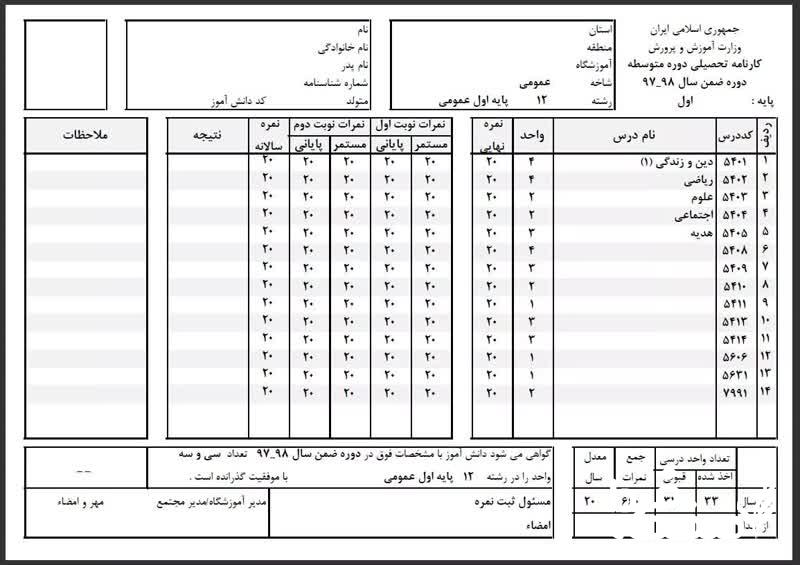 جمهوری اسلامی ایران
وزارت آموزش و پرورش
کارنامه تحصیلی دوره متوسطه
دوره ضمن سال ۹۸_۹۷
پایه : اول
استان
منطقه
آموزشگاه
شاخه عمومی
رشته ۱۲ پایه اول عمومی
نام
نام خانوادگی
نام پدر
شماره شناسنامه
متولد کد دانش آموز
ردیف کددرس نام درس واحد نمره نهایی نمرات نوبت اول مستمر پایانی نمرات نوبت دوم مستمر پایانی نمره سالانه نتیجه ملاحظات
۱ ۵۴۰۱ دین و زندگی (۱) ۴ ۲۰ ۲۰ ۲۰ ۲۰ ۲۰ ۲۰
۲ ۵۴۰۲ ریاضی ۴ ۲۰ ۲۰ ۲۰ ۲۰ ۲۰ ۲۰
۳ ۵۴۰۳ علوم ۲ ۲۰ ۲۰ ۲۰ ۲۰ ۲۰ ۲۰
۴ ۵۴۰۴ اجتماعی ۲ ۲۰ ۲۰ ۲۰ ۲۰ ۲۰ ۲۰
۵ ۵۴۰۵ هدیه ۳ ۲۰ ۲۰ ۲۰ ۲۰ ۲۰ ۲۰
۶ ۵۴۰۸ ۴ ۲۰ ۲۰ ۲۰ ۲۰ ۲۰ ۲۰
۷ ۵۴۰۹ ۳ ۲۰ ۲۰ ۲۰ ۲۰ ۲۰ ۲۰
۸ ۵۴۱۰ ۲ ۲۰ ۲۰ ۲۰ ۲۰ ۲۰ ۲۰
۹ ۵۴۱۱ ۱ ۲۰ ۲۰ ۲۰ ۲۰ ۲۰ ۲۰
۱۰ ۵۴۱۳ ۳ ۲۰ ۲۰ ۲۰ ۲۰ ۲۰ ۲۰
۱۱ ۵۴۱۴ ۳ ۲۰ ۲۰ ۲۰ ۲۰ ۲۰ ۲۰
۱۲ ۵۶۰۶ ۱ ۲۰ ۲۰ ۲۰ ۲۰ ۲۰ ۲۰
۱۳ ۵۶۳۱ ۱ ۲۰ ۲۰ ۲۰ ۲۰ ۲۰ ۲۰
۱۴ ۷۹۹۱ ۲ ۲۰ ۲۰ ۲۰ ۲۰ ۲۰ ۲۰
تعداد واحد درسی جمع نمرات معدل سال
اخذ شده قبولی
سال ۳۳ ۲۰
از
گواهی می شود دانش آموز با مشخصات فوق در دوره ضمن سال ۹۸_۹۷ تعداد سی و سه
واحد را در رشته ۱۲ پایه اول عمومی با موفقیت گذرانده است .
__
مسئول ثبت نمره
امضاء
مدیر آموزشگاه/مدیر مجتمع مهر و امضاء